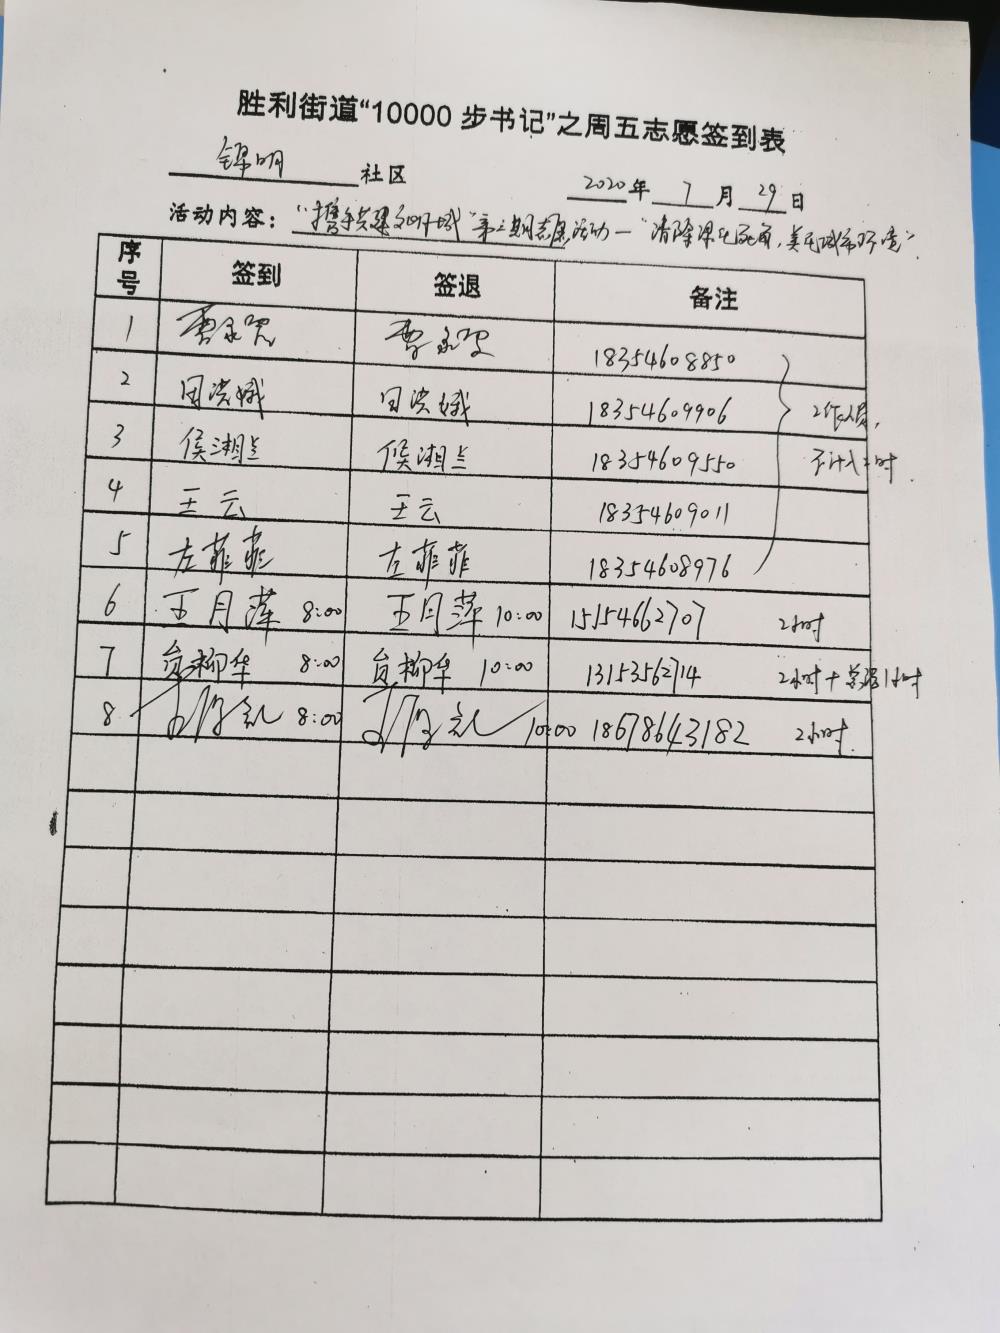 胜利街道“10000步书记”之周五志愿签到表
锦明 社区 2020年 7月 29日
活动内容：“携手共建文明城”第三期志愿活动—“清除卫生死角，美化城市环境”.
序号 签到 签退 备注
1 18354608850
2 田洪娥 田洪娥 18354609906 工作人员,
3 侯湘兰 侯湘兰 18354609550 不计入工时
4 王云 王云 18354609011
5 左菲菲 左菲菲 18354608976
6 王月萍 8:00 王月萍 10:00 15154662707 2小时
7 柳华 8:00 柳华 10:00 13153562714 2小时+ 1小时
8 8:00 10:00 18678643182 2小时.